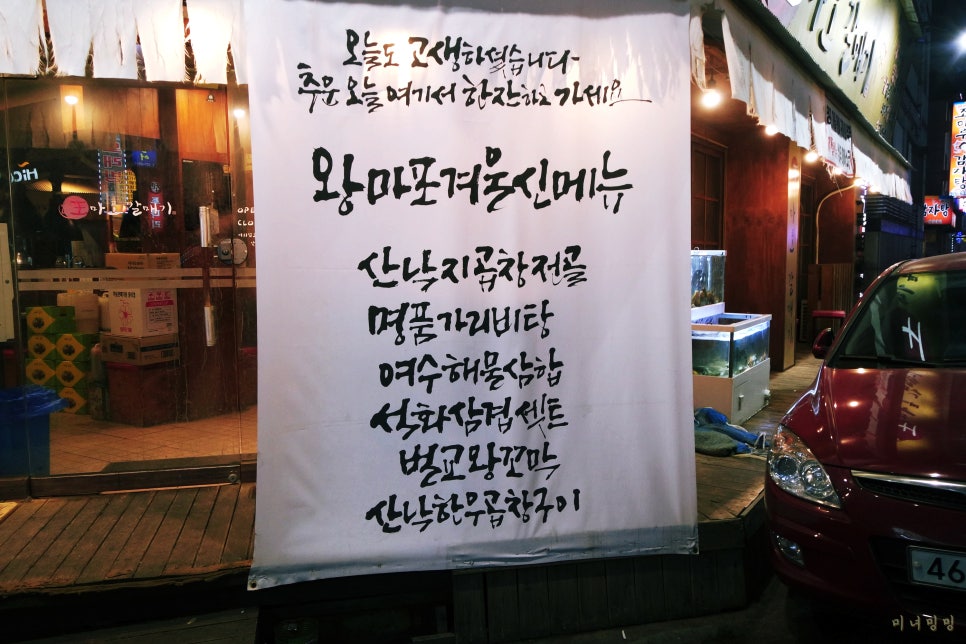 오늘도 고생하셨습니다-
추운 오늘 여기서 한잔하고 가세요
왕마포겨울신메뉴
산낙지곱창전골
명품가리비탕
여수해물삼합
석화삼겹셋트
벌교왕꼬막
산낙한우곱창구이
마포갈매기
46
미녀밍밍